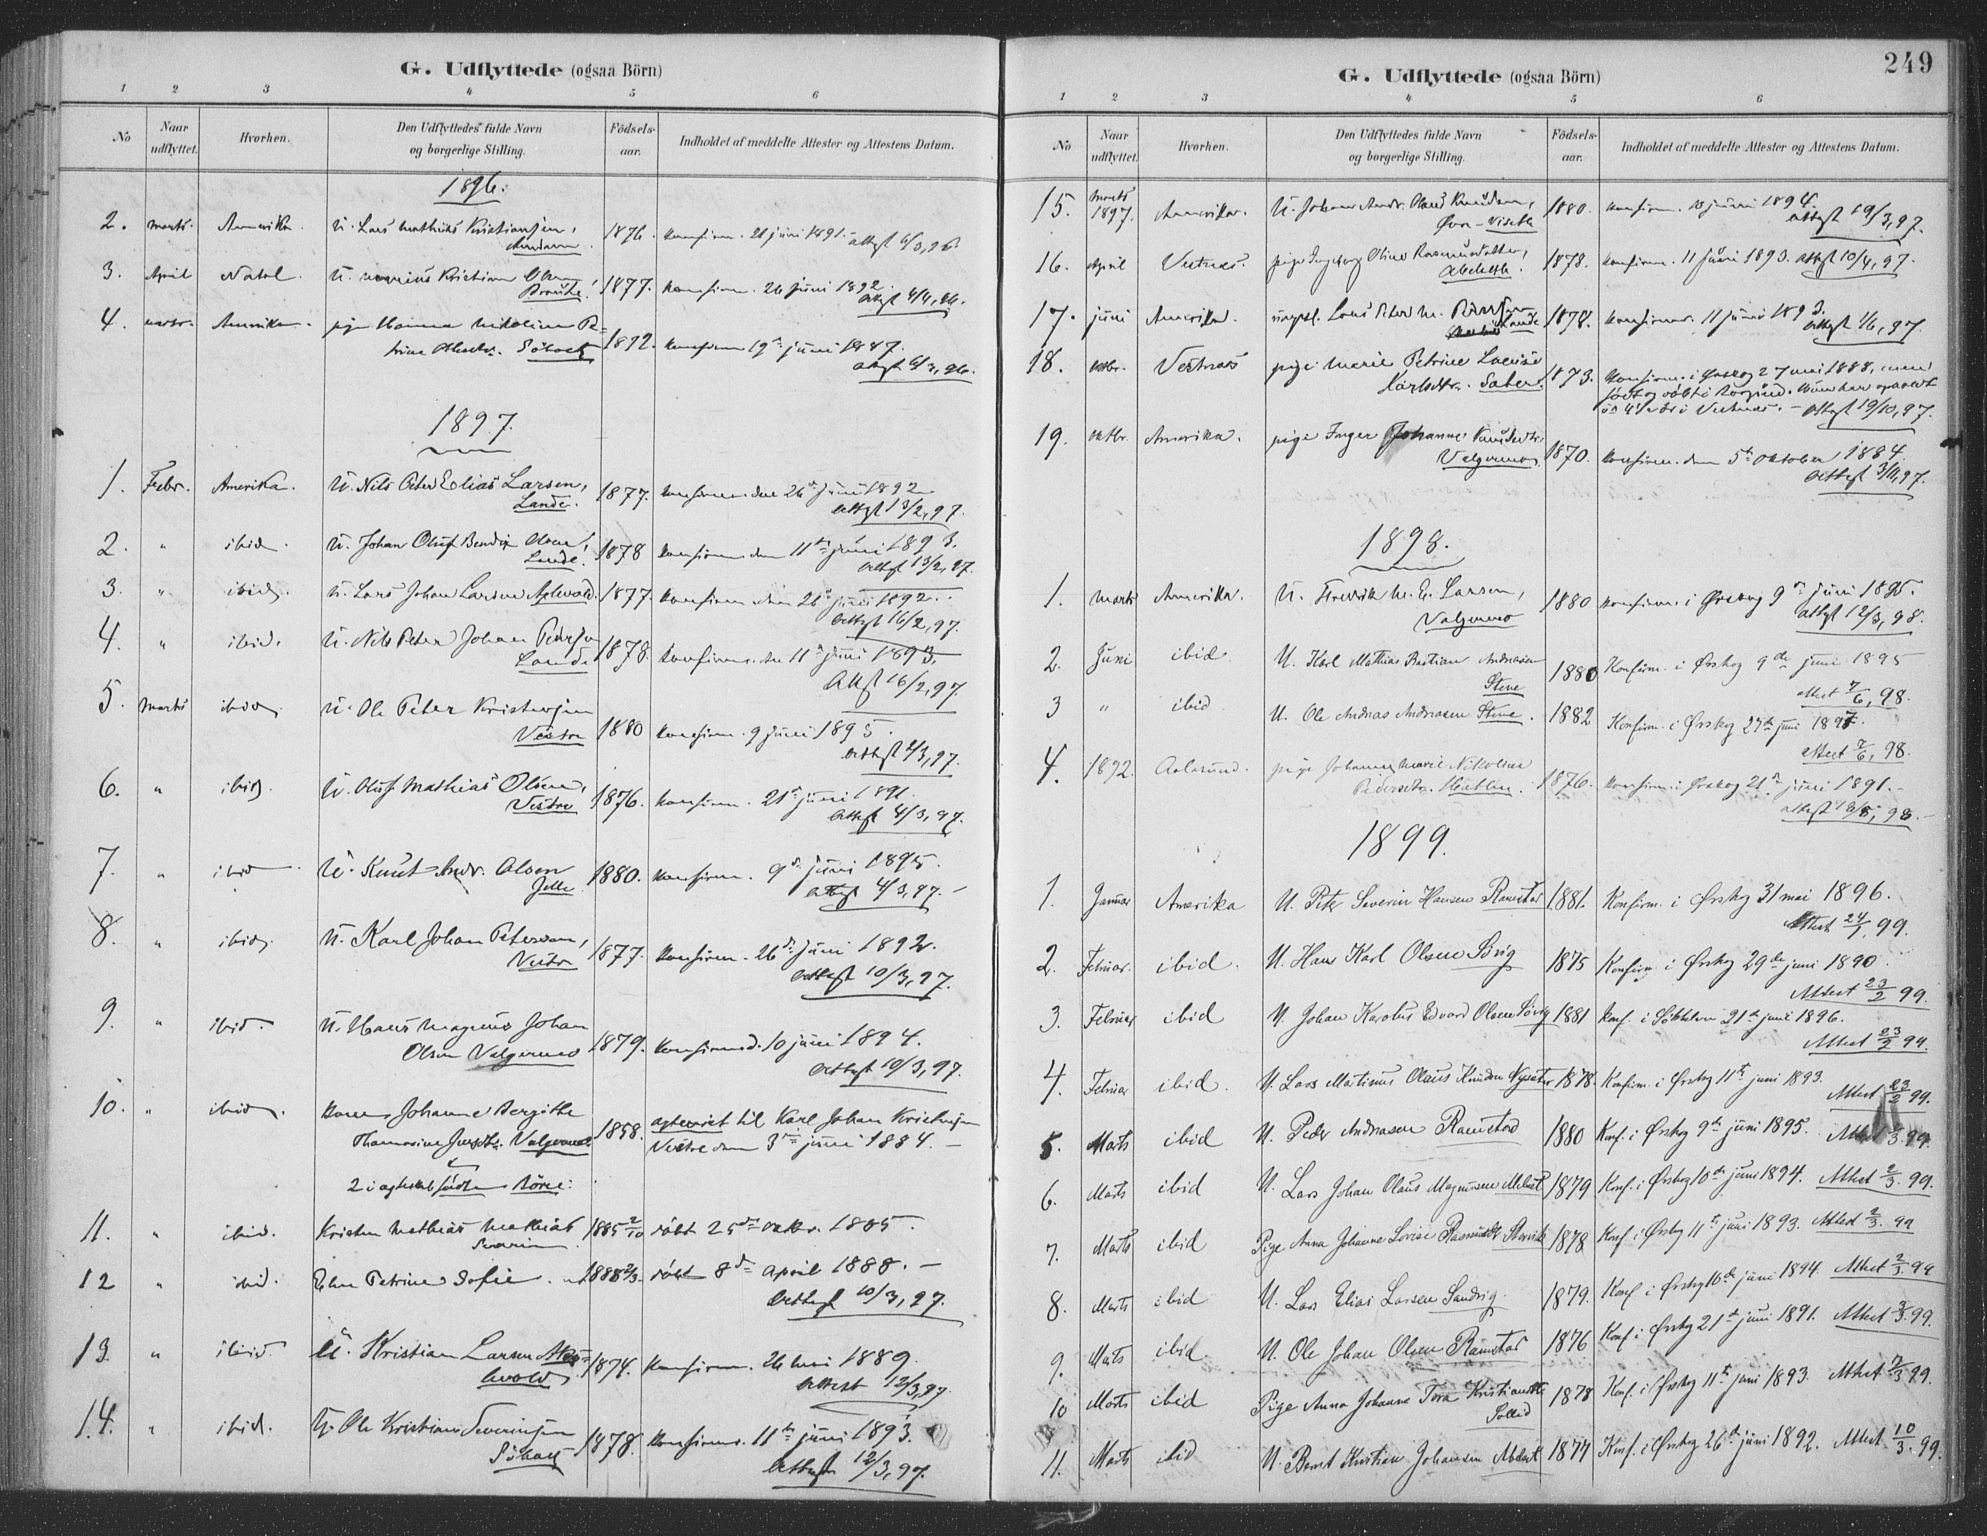 G. Udflyttede (ogsaa Börn)
1 2 3 4 5 6
No Naar udflyttet. Hvorhen. Den Udflyttedes fulde Navn og borgerlige Stilling. Födsels-aar. Indholdet af meddelte Attester og Attestens Datum.
1896.
2. marts. Amerika U. Lars Mathias Kristiansen, 1876. Konfirm. 21 juni 1891. attest 6/3, 96.
3. April Natal. U. Kristian 1877. Konfirm. 26 juni 1892.
attest 4/4, 96.
4. Amerika. pige Hanna Nikoline Pe-
trine 1872. Konfirm 19de juni 1887.
1897.
1. Febr. Amerika. U. Nils Peter Elias Larsen, 1877. Konfirm. den 26de juni 1892
Lande. attest 13/2, 97.
2. " ibid. U. Johan Oluf Bendix Olsen, 1878 Konfirm den 11te juni 1893.
Lande. attest 13/2, 97.
3. " ibid. U. Lars Johan Larsen Apelvold. 1877. Konfirm. den 26de juni 1892.
attest 16/2, 97.
4. " ibid. U. Nils Peter Johan 1878. Konfirm. den 11te juni 1893.
Lande Attest 16/2, 97.
5. Marts ibid. U. Ole Peter Kristensen
Vestre 1880 Konfirm. 9 juni 1895.
attest 2/3, 97.
6. " ibid. U. Oluf Mathias Olsen,
Vestre 1876. Konfirm. 21de juni 1891.
attest 4/3, 97.
7. " ibid U. Knut Andr. Olsen 1880. Konfirm. 9de juni 1895.
attest 4/3, 97. -
8. " ibid. U. Karl Johan Petersen,
Vestre 1877. Konfirm. 26de juni 1892.
attest 10/3, 97.
9. " ibid. U. Hans Magnus Johan
Olsen Valgermo 1879. Konfirmed. 10 juni 1894.
attest 10/3, 97.
10. " ibid. Kone Johanne Bergitte
Valgermo 1858. agteviet til Karl Johan Kristensen
Vestre den 3die juni 1884. -
2 i ægteskab födte Börn:
11. " ibid. Kristen Mathias Mathias
Severin. 1885 2/10 döbt 25de oktbr. 1885.
12 " ibid. Elen Petrine Sofie. 1888 döbt 8de April 1888. -
attest 10/3, 97.
13. " ibid. U. Kristian Larsen 1874. Konfirm. 26 mai 1889.
attest 12/3, 97
14. " ibid. U. Ole Kristian Severinsen 1878. Konfirm. 11te juni 1893.
attest 12/3, 97.
249
G. Udflyttede (ogsaa Börn)
1 2 3 4 5 6
No Naar udflyttet. Hvorhen. Den Udflyttedes fulde Navn og borgerlige Stilling. Födsels-aar. Indholdet af meddelte Attester og Attestens Datum.
15. Marts 1897. Amerika. U. Johan Andr. Olaus Knudsen, 1880. Konfirm. 10 juni 1894.
attest 19/3, 97.
16. April Vestnæs. pige Ingeborg Oline Rasmusdatter, 1878. Konfirm. 11 juni 1893. attest 10/4, 97.
17. juni Amerika. ungkl. Lars Peter M. 1878. Konfirmer. 11 juni 1893.
Lande attest 1/6, 97.
18. oktbr. Vestnæs pige Marie Petrine Lovise
Karlsdtr. 1873. Konfirm. i Ørskog 27 mai 1888, men
födt og döbt i
i Vestnæs. - attest 19/10, 97.
19. oktbr. Amerika. pige Inger Johanne Knudsdtr.
Valgermo 1870. Konfirm. den 5te oktober 1884.
attest 3/11, 97.
1898.
1. marts Amerika. U. Fredrik M. E. Larsen,
Valgermo 1880 Konfirm. i Ørskog 9de juni 1895.
attest 12/3, 98.
2. Juni ibid U. Karl Mathias Bastian Andreasen
Stene 1880 Konfirm. i Ørskog 9de juni 1895
Attest 7/6, 98.
3 " ibid U. Ole Andreas Andreasen Stene. 1882 Konfirm. i Ørskog 27de juni 1897.
Attest 7/6, 98.
4. 1892. Aalesund. pige Johanne Marie Nikoline
Pedersdtr. 1876. Konfirm. i Ørskog 21de juni 1891. -
1899.
1. Januar Amerika U. Peter Severin Hansen Ramstad 1881. Konfirm. i Ørskog 31 mai 1896.
Attest 24/1 99.
2. Februar. ibid. U. Hans Karl Olsen Sövig 1875 Konfirm. i Ørskog 29de juni 1890.
Attest 23/2 99.
3. Februar ibid U. Johan Karolus Edvard Olsen Sövig 1881 Konf. i Søkkelven 21de juni 1896.
Attest 23/2 99.
4. Februar ibid. U. Lars Martinus Olaus Knudsen 1878 Konfirm. i Ørskog 11te juni 1893.
Attest 23/2 99.
5. Marts ibid U. Peder Andreasen Ramstad 1880 Konf. i Ørskog 9de juni 1895. Attest 2/3. 99.
6. Marts ibid U. Lars Johan Olaus Magnusen 1879 Konf. i Ørskog 10de juni 1894. Attest 2/3. 99.
7. Marts ibid Pige Anna Johanne Lovise Rasmusdtr. 1878 Konf. i Ørskog 11te juni 1893. Attest 2/3. 99
8. Marts ibid U. Lars Elias Larsen Sandvig. 1879. Konf. i Ørskog 10de juni 1894. Attest 2/3. 99
9. Marts ibid. U. Ole Johan Olsen Ramstad 1876 Konf. i Ørskog 21de juni 1891. Attest 2/3. 99.
10 Marts ibid Pige Anna Johanne Tora Kristiansdtr.
1878 Konf. i Ørskog 11te juni 1893. Attest 99.
11. Marts ibid U. Bernt Kristian Johansen 1877 Konf. i Ørskog 26de juni 1892. Attest 10/3. 99.